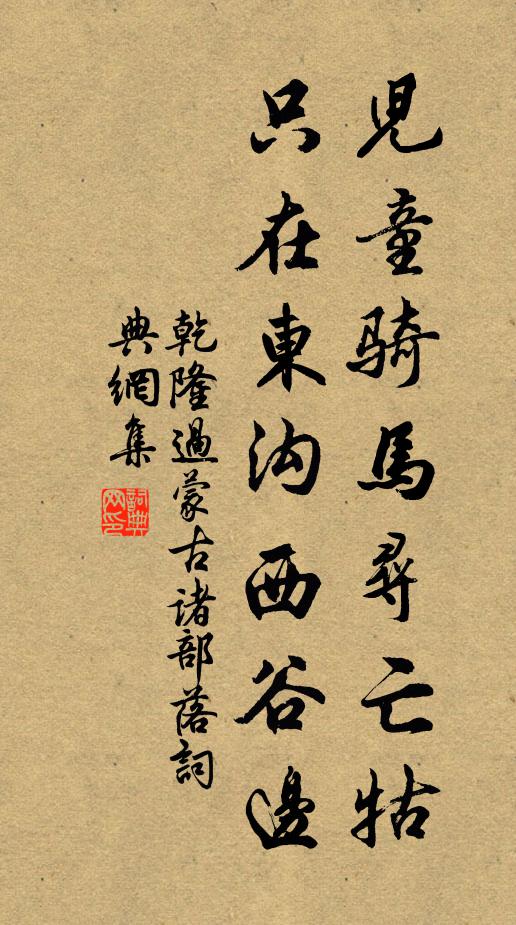 兒童騎馬尋亡牯
只在東沟西谷邊
乾隆過蒙古諸部落詞
典網集
詞典网印